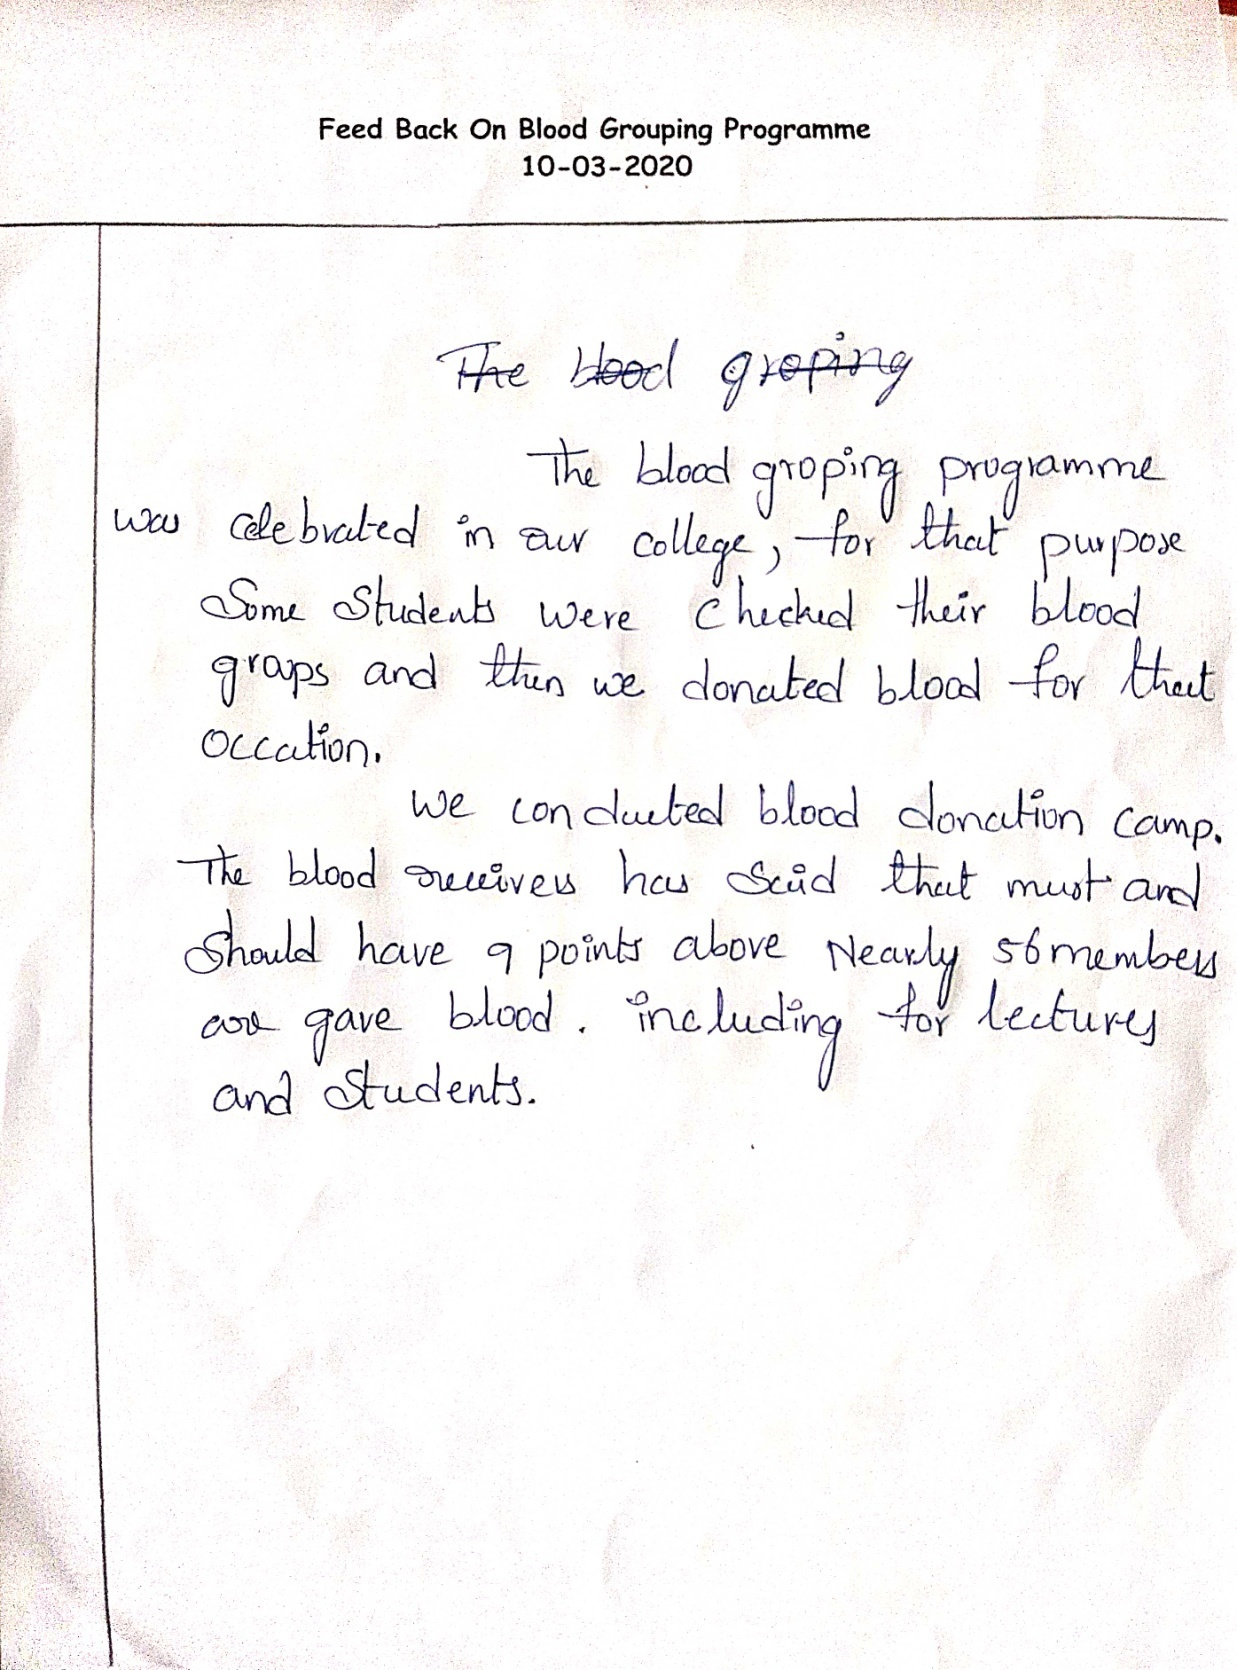 Feed Back On Blood Grouping Programme
10-03-2020
The blood groping
The blood groping programme
was celebrated in our college, for that purpose
Some Students were checked their blood
graps and then we donated blood for that
occation.
we conducted blood donation camp.
The blood receivers has said that must and
should have 9 points above Nearly 56 members
are gave blood. including for lectures
and Students.